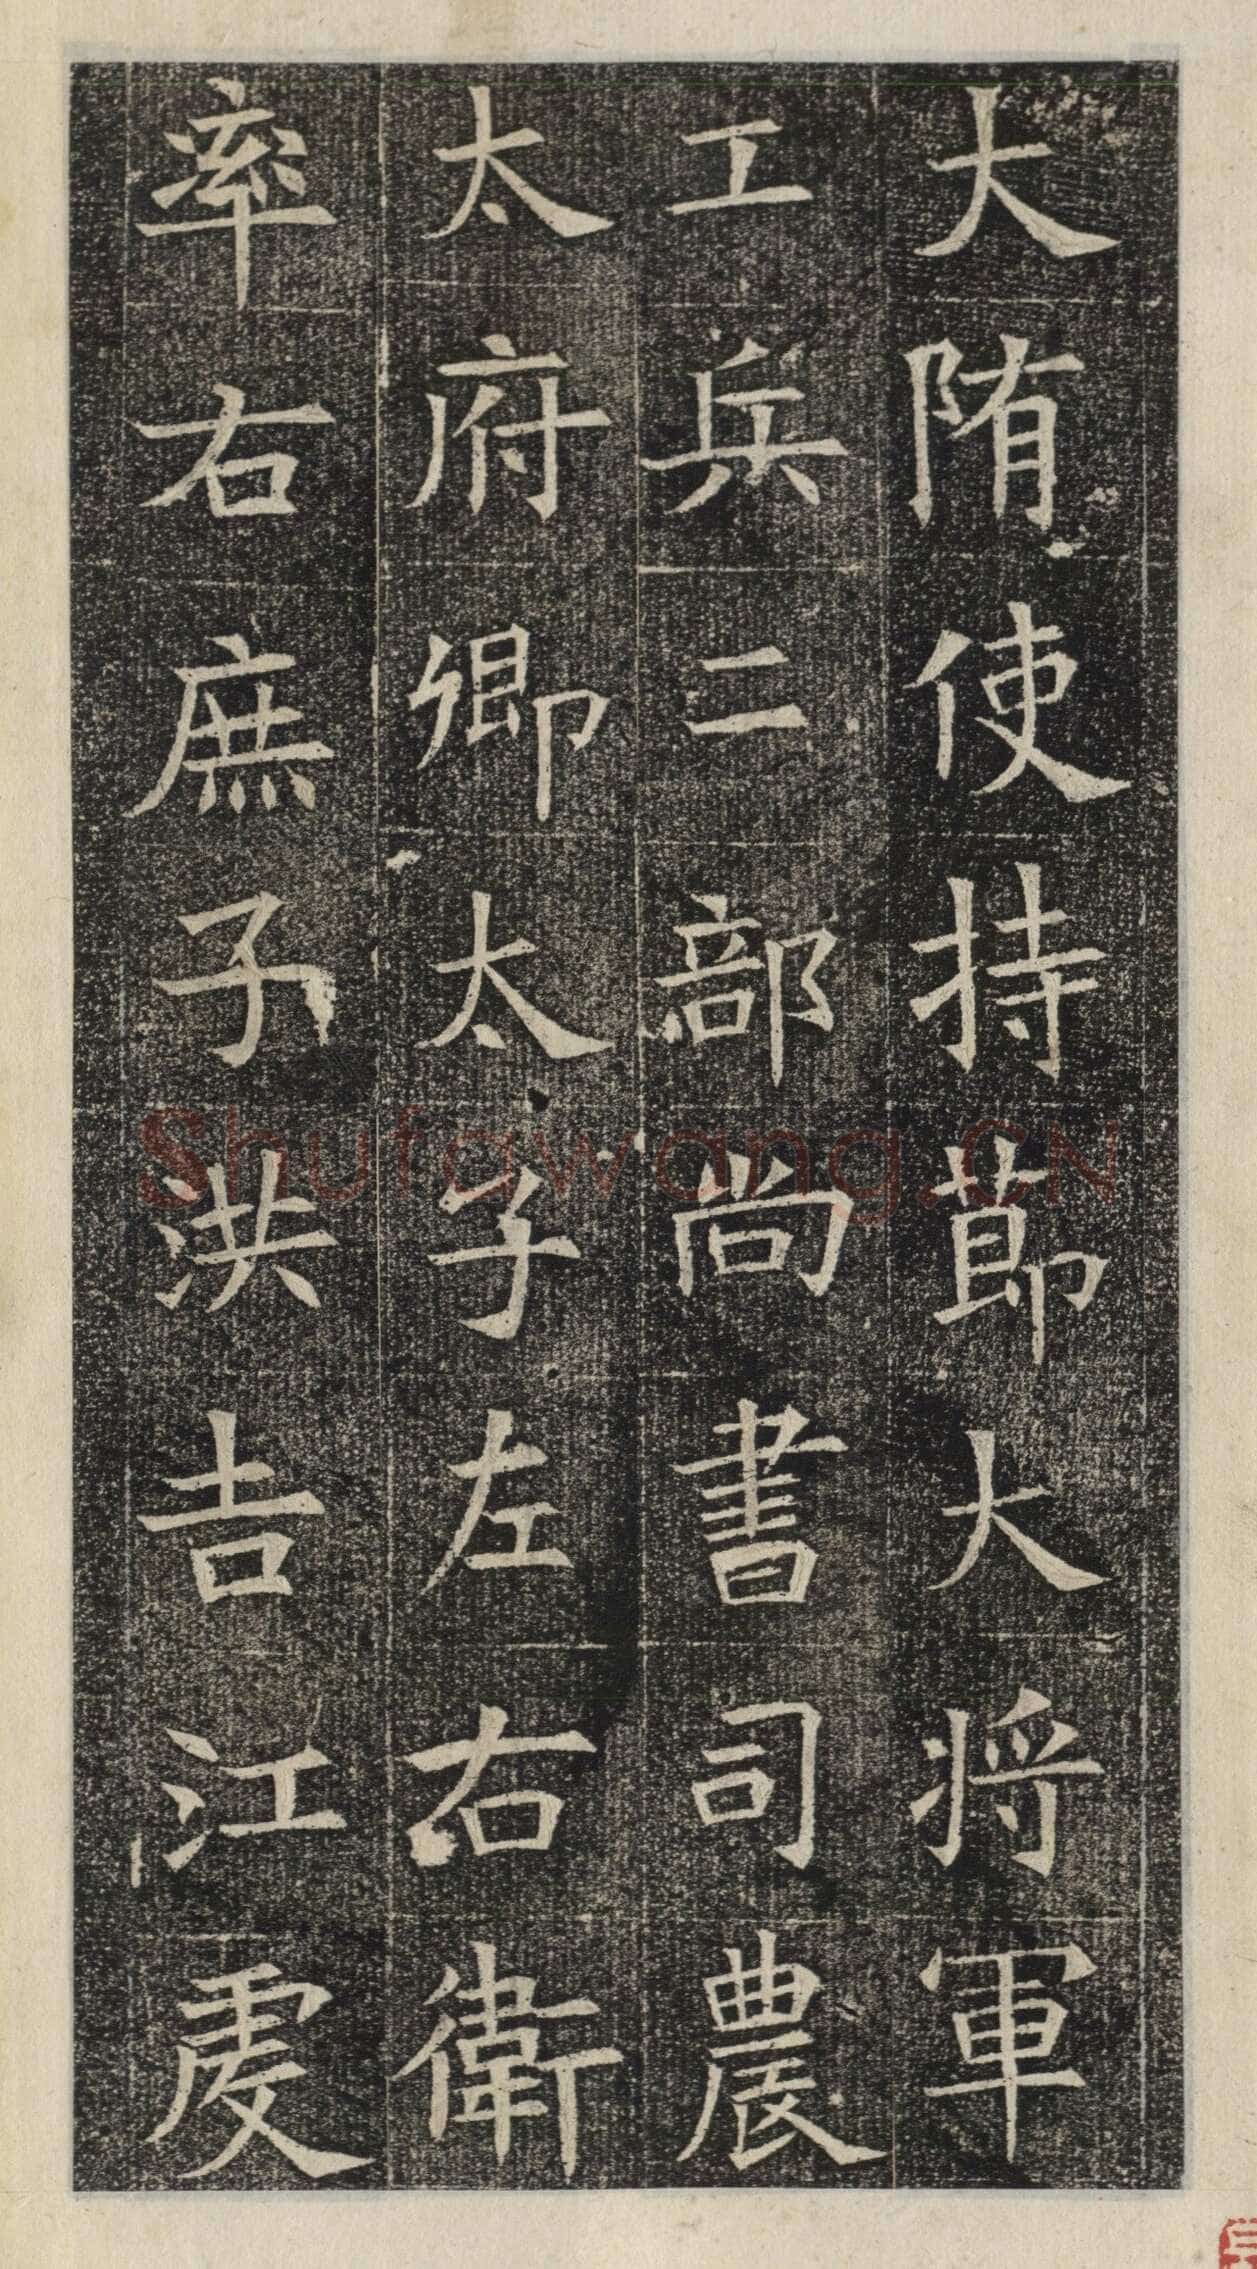 大隋使持節大将軍
工兵二部尚書司農
太府卿太子左右衛
率右庶子洪吉江虔
Shufawang.CN